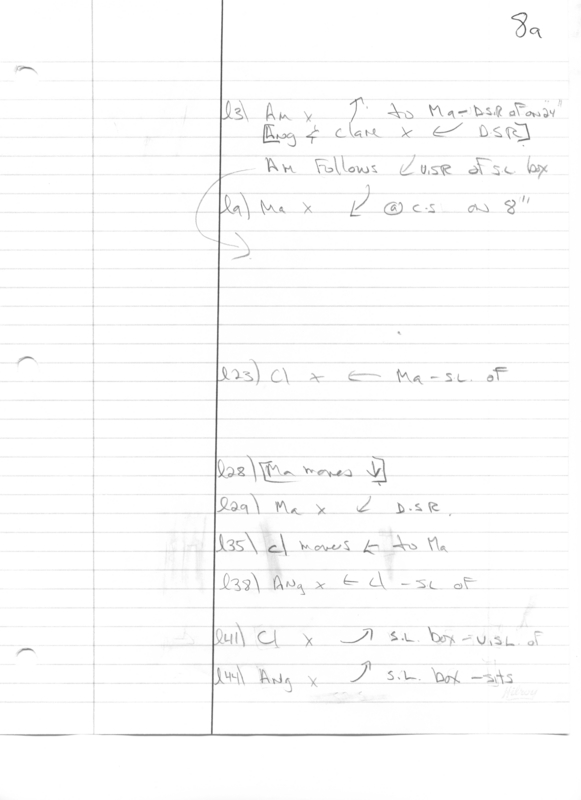 8a
l3) Am x ↗ to Ma - D.S.R of on 24"
[Ang & Clare x ↙ DSR]
Am Follows ↙ U.SR of SL box
l9) Ma x ↙ @ C.S. on 8"
l23) Cl x ← Ma - SL of
l28) [Ma moves ↓]
l29) Ma x ↙ D.SR.
l35) Cl moves ← to Ma
l38) Ang x ← Cl - SL of
l41) Cl x ↗ S.L. box - U.SL of
l44) Ang x ↗ S.L. box - sits